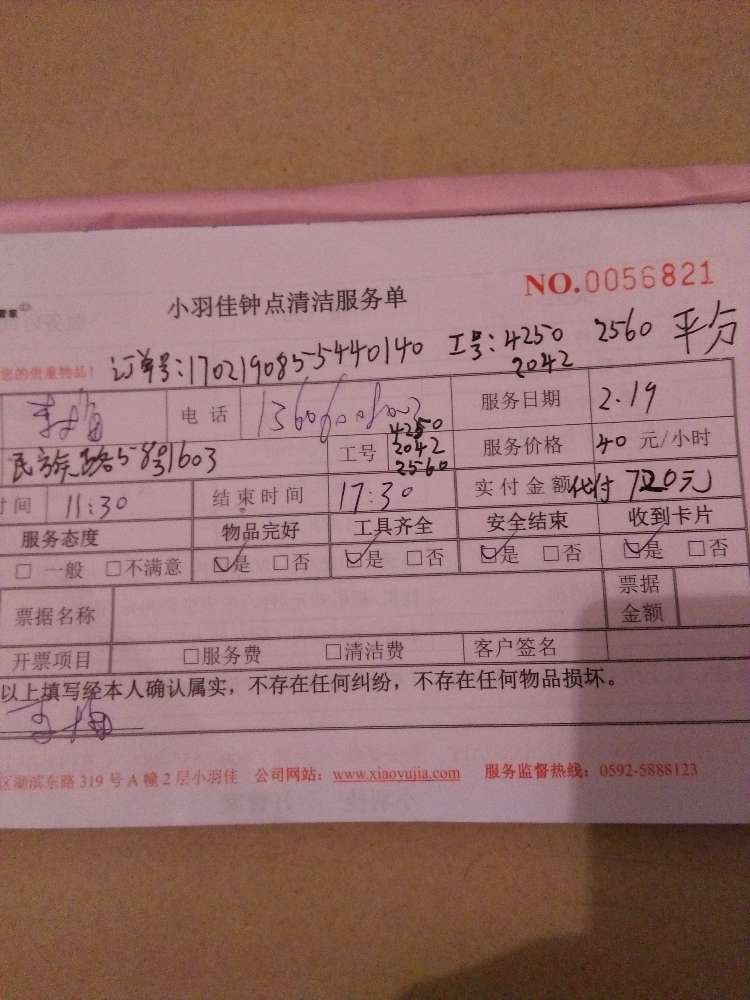 NO.0056821
小羽佳钟点清洁服务单
您的贵重物品! 订单号:17021908555440140 工号:4250 2560 平分
2042
电话 服务日期 2.19
民族路58 1603 工号 4250 2042 2560 服务价格 40 元/小时
时间 11:30 结束时间 17:30 实付金额 代付 720元
服务态度 物品完好 工具齐全 安全结束 收到卡片
□ 一般 □不满意 ☑是 □否 ☑是 □否 ☑是 □否 ☑是 □否
票据名称 票据金额
开票项目 □服务费 □清洁费 客户签名
以上填写经本人确认属实，不存在任何纠纷，不存在任何物品损坏。
区湖滨东路 319 号 A 幢 2 层小羽佳 公司网站：www.xiaoyujia.com 服务监督热线：0592-5888123